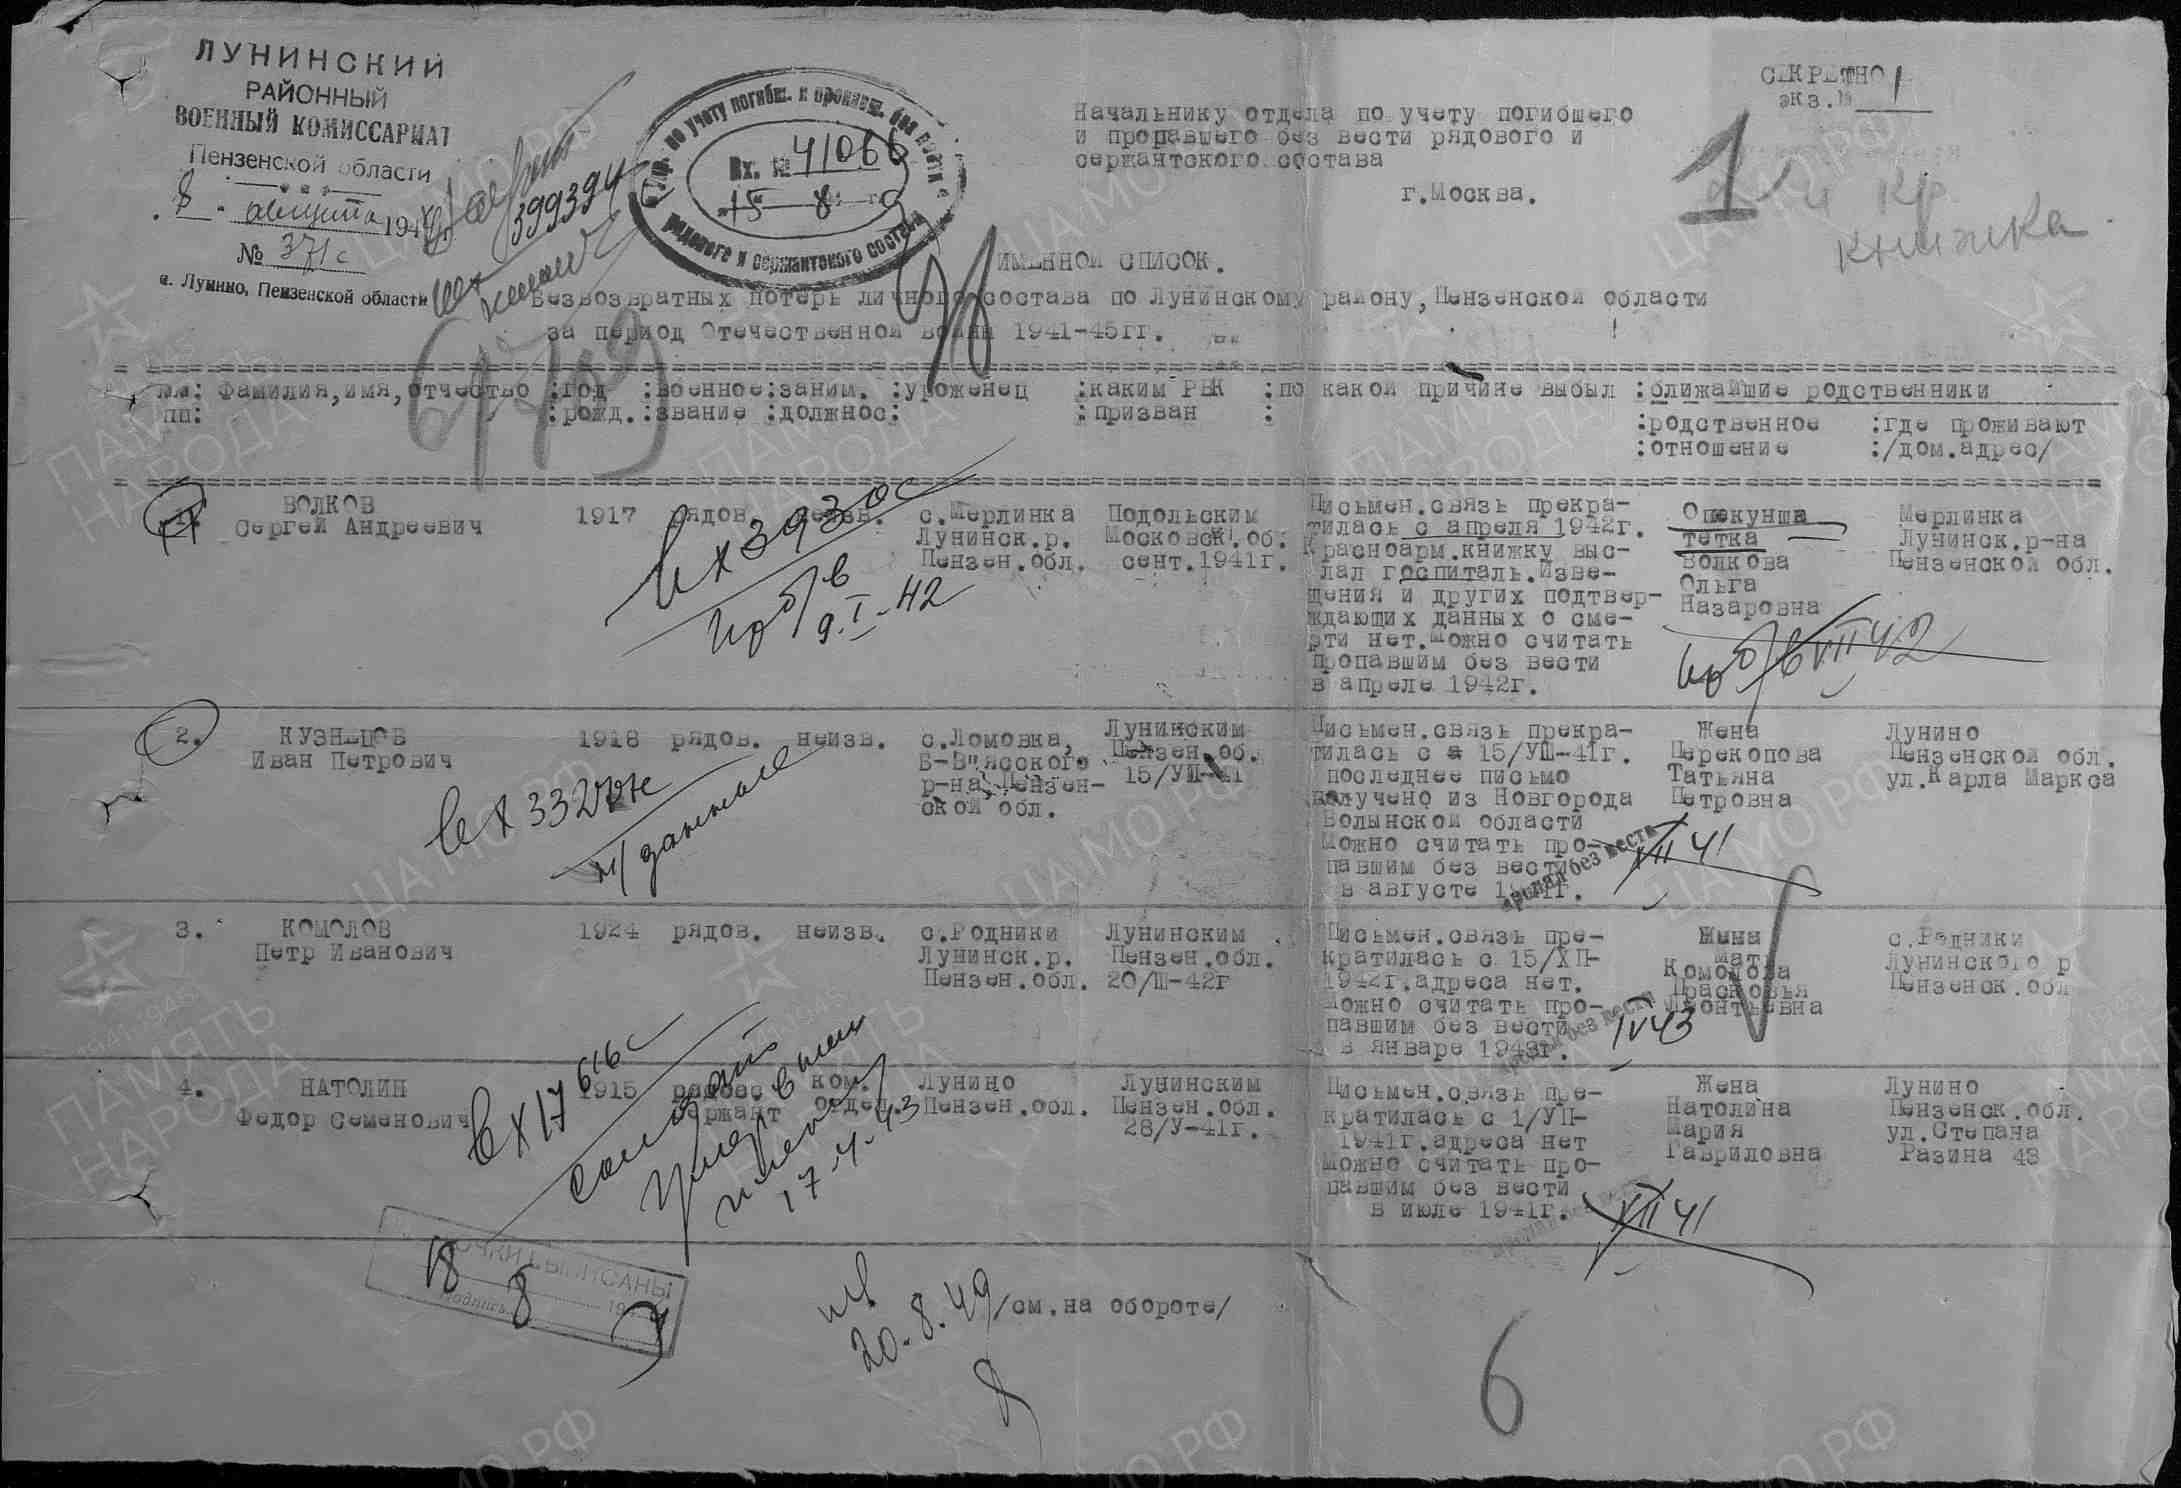 ЛУНИНСКИЙ
РАЙОННЫЙ
ВОЕННЫЙ КОМИССАРИАТ
Пензенской области
8 августа 194
№ 371с
с. Лунино, Пензенской области
399394
Упр. по учету погибш. и пропавш. без вести
Вх. № 41066
15 8
рядового и сержантского состава
СЕКРЕТНО
экз.№ 1
Начальнику отдела по учету погибшего
и пропавшего без вести рядового и
сержантского состава
г.Москва.
1
кр
книжка
ИМЕННОЙ СПИСОК.
Безвозвратных потерь личного состава по Лунинскому району, Пензенской области
за период Отечественной войны 1941-45гг.
№№: Фамилия,имя,отчество :год :военное:заним. :уроженец :каким РВК :по какой причине выбыл :ближайшие родственники
пп: :рожд.:звание :должнос: :призван :
:родственное :где проживают
:отношение :/дом.адрес/
1. ВОЛКОВ
Сергей Андреевич
1917 рядов. неизв.
с.Мерлинка
Лунинск.р.
Пензен.обл.
Подольским
Московск.об.
сент.1941г.
Письмен.связь прекра-
тилась с апреля 1942г.
Красноарм.книжку выс-
лал госпиталь.Изве-
щения и других подтвер-
ждающих данных о сме-
рти нет.Можно считать
пропавшим без вести
в апреле 1942г.
Опекунша
тетка
Волкова
Ольга
Назаровна
Мерлинка
Лунинск.р-на
Пензенской обл.
вх 3930с
пр б/в
9.I-42
пр б/в VII 42
2. КУЗНЕЦОВ
Иван Петрович
1918 рядов. неизв.
с.Ломовка,
Б-В"ясского
р-на, Пензен-
ской обл.
Лунинским
Пензен.об.
15/УШ-41
Письмен.связь прекра-
тилась с 15/УШ-41г.
последнее письмо
получено из Новгорода
Волынской области
Можно считать про-
павшим без вести
в августе 1941г.
Жена
Перекопова
Татьяна
Петровна
Лунино
Пензенской обл.
ул.Карла Маркса
н/данные
пропал без вести
VIII 41
3. КОМОЛОВ
Петр Иванович
1924 рядов. неизв.
с.Родники
Лунинск.р.
Пензен.обл.
Лунинским
Пензен.обл.
20/Ш-42г
Письмен.связь пре-
кратилась с 15/ХП-
1942г.адреса нет.
Можно считать про-
павшим без вести
в январе 1943г.
Жена
мать
Комолова
Прасковья
Леонтьевна
с.Родники
Лунинского р
Пензенск.обл
пропал без вести
IV 43
4. НАТОЛИН
Федор Семенович
1915 сержант
ком.
отдел.
Лунино
Пензен.обл.
Лунинским
Пензен.обл.
28/У-41г.
Письмен.связь пре-
кратилась с 1/УП-
1941г.адреса нет
Можно считать про-
павшим без вести
в июле 1941г.
Жена
Натолина
Мария
Гавриловна
Лунино
Пензенск.обл.
ул.Степана
Разина 43
вх 17616с
солдат
умер в плену
17-4-43
VII 41
ВЫПИСАНЫ
Подпись
18 8
20.8.49
/см.на обороте/
6